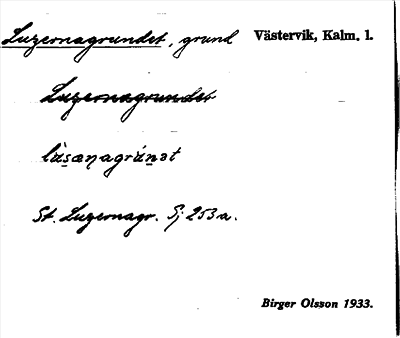 Luzernagrundet, grund Västervik, Kalm. l.
Luzernagrundet
lùsæṇagrúnət
St. Luzernagr. Sj 253a.
Birger Olsson 1933.